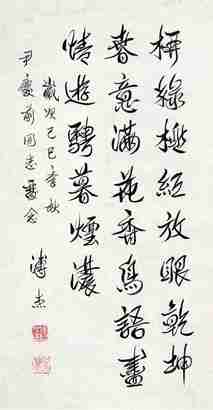 柳綠桃紅放眼乾坤
春意滿花香鳥語盡
情遊騁暮煙濃
歲次己巳季秋
尹慶前同志留念
溥杰